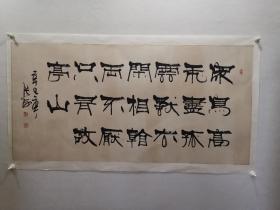 眾鳥高
飛盡孤
雲獨去
閑相看
兩不厭
只有敬
亭山